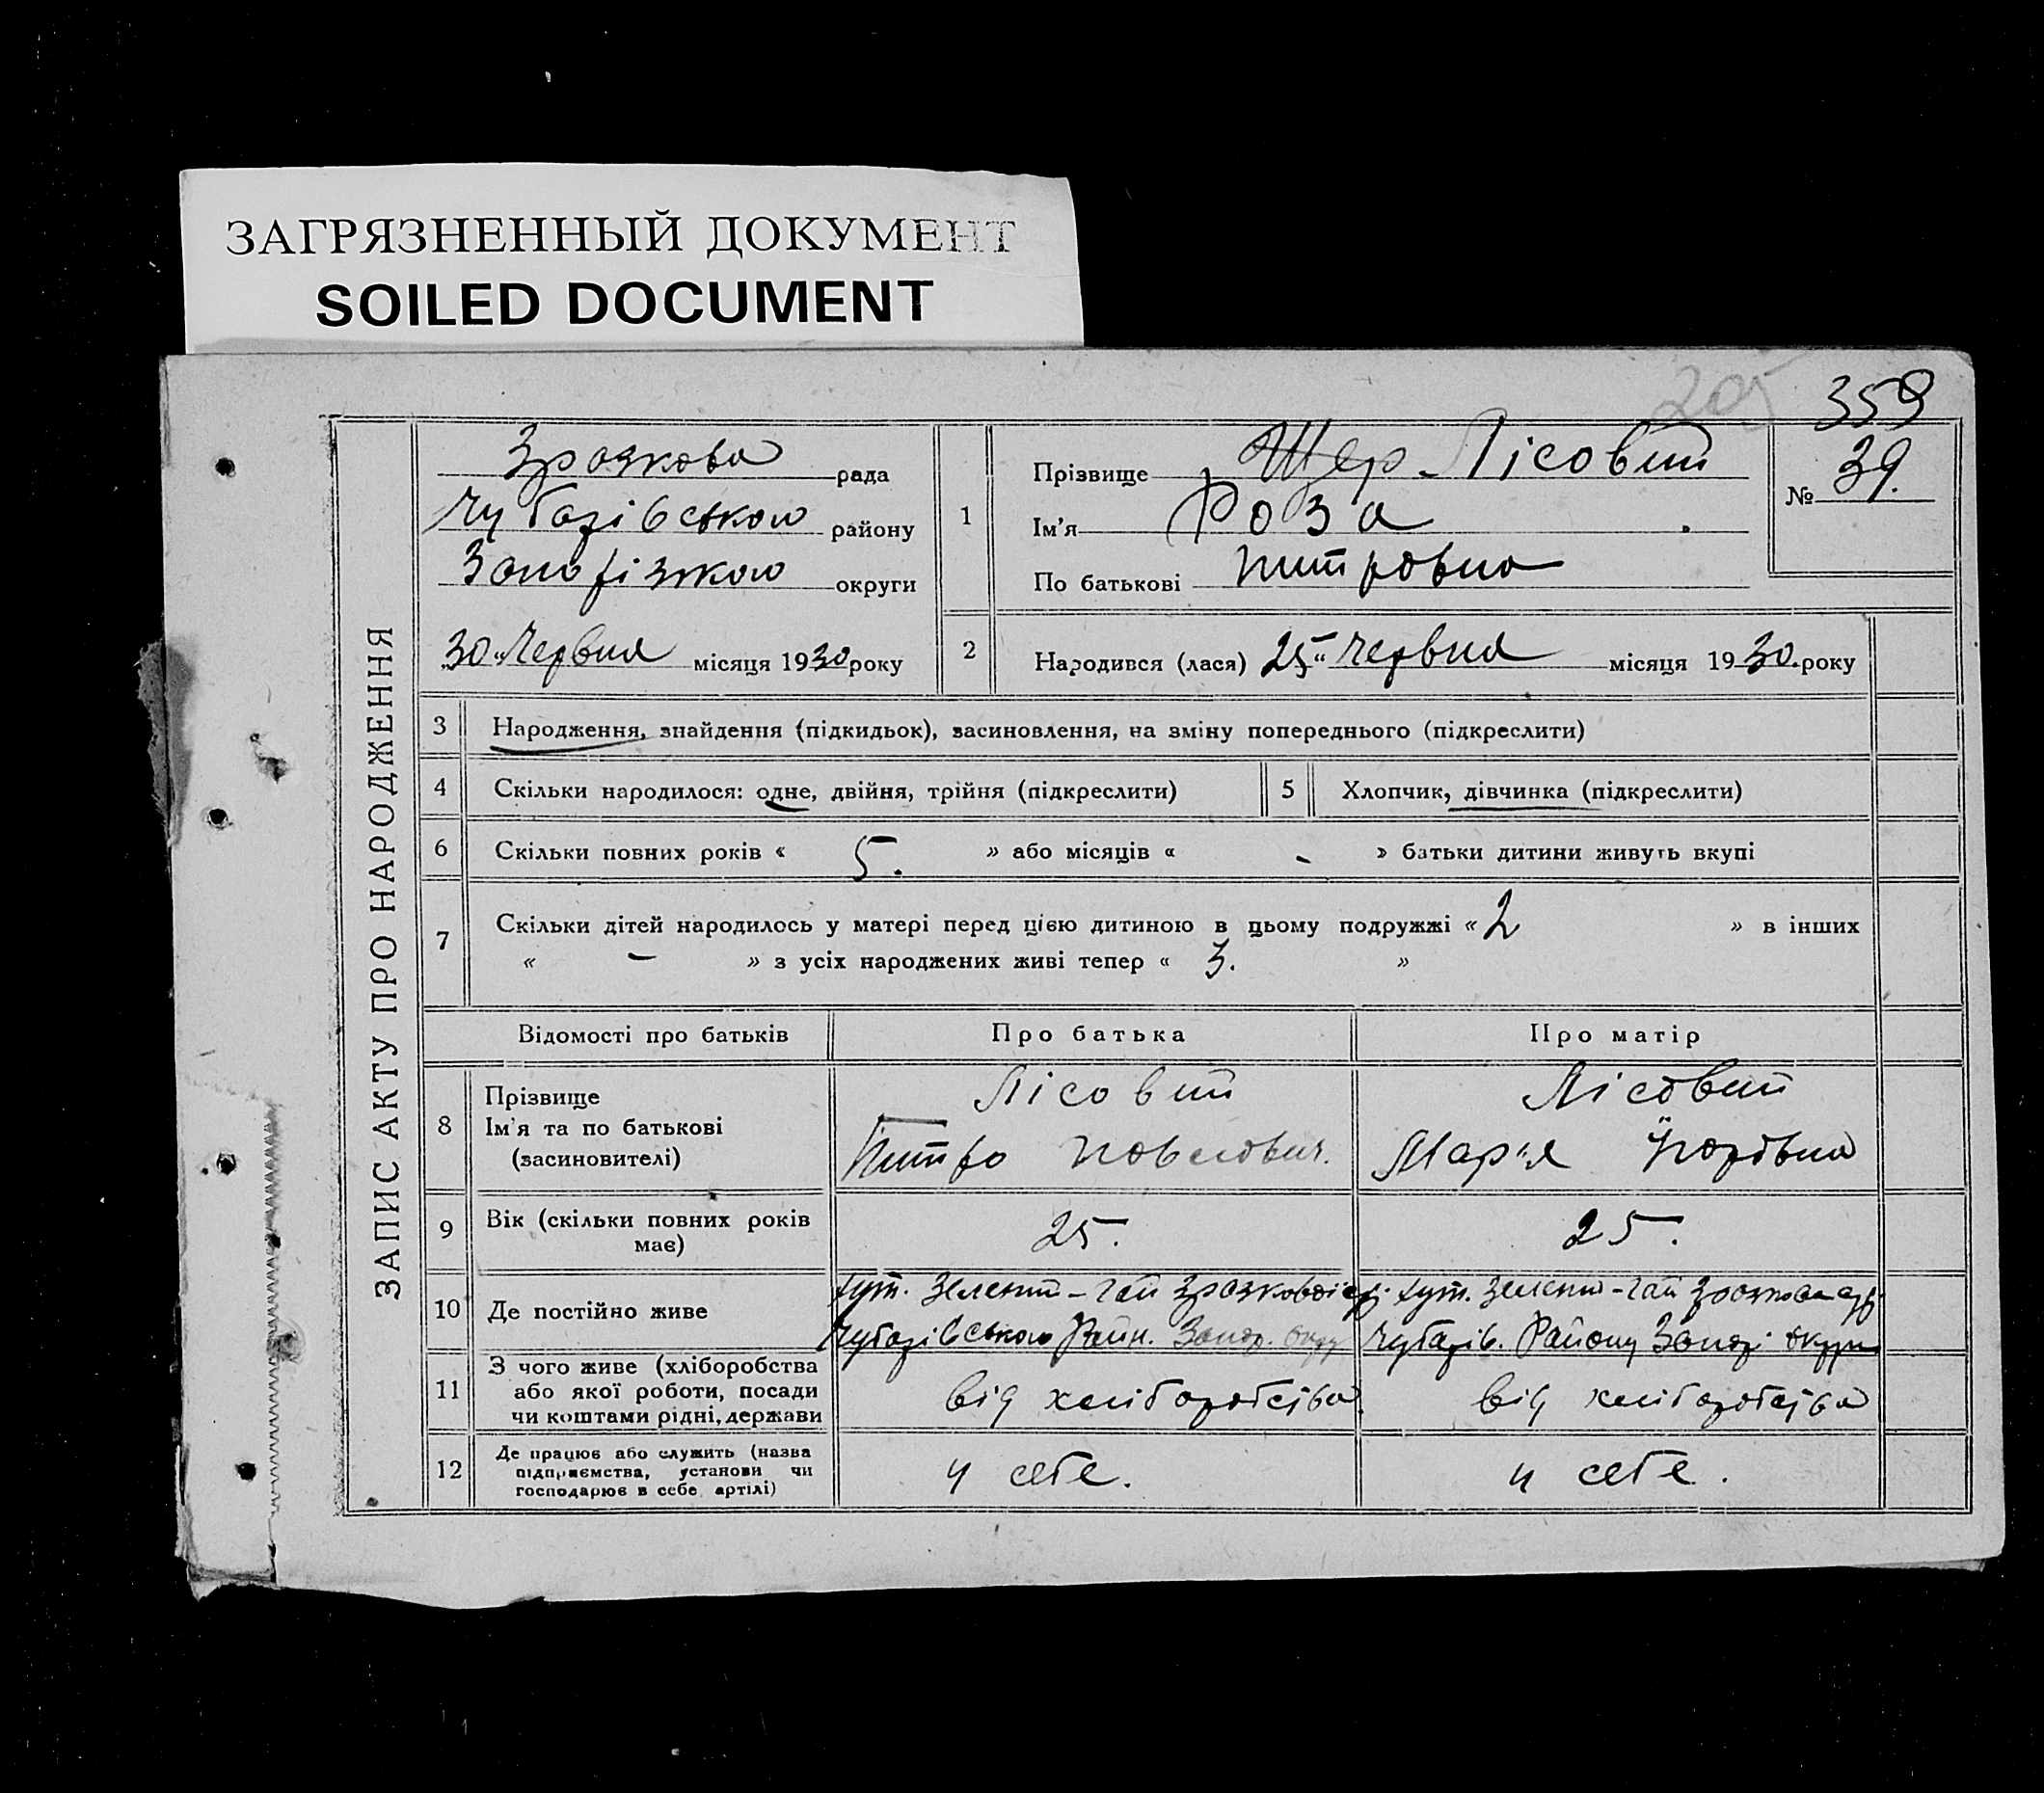 ЗАГРЯЗНЕННЫЙ ДОКУМЕНТ
SOILED DOCUMENT
205
359
ЗАПИС АКТУ ПРО НАРОДЖЕННЯ
Зразкова рада
Чубарівського району
округи
30 Червня місяця 1930 року
1
Прізвище Лісовий
Ім'я Роза
По батькові Питровна
№ 39.
2
Народився (лася) 25 " Червня місяця 1930. року
3 Народження, знайдення (підкидьок), засиновлення, на зміну попереднього (підкреслити)
4 Скільки народилося: одне, двійня, трійня (підкреслити)
5 Хлопчик, дівчинка (підкреслити)
6 Скільки повних років « 5. » або місяців « - » батьки дитини живуть вкупі
7 Скільки дітей народилось у матері перед цією дитиною в цьому подружжі « 2 » в інших
« - » з усіх народжених живі тепер « 3. »
Відомості про батьків
Про батька
Про матір
8 Прізвище
Ім'я та по батькові
(засиновителі)
Лісовий
Питро Павлович.
Лісовий
Мар'я
9 Вік (скільки повних років
має)
25.
25.
10 Де постійно живе
хут. Зелений-Гай Зразковоі
Чубарівського Райн. Запор. окр
хут. Зелений-Гай
Чубарів. Району Запорі округи
11 З чого живе (хліборобства
або якої роботи, посади
чи коштами рідні, держави
від хліборобства
від хліборобства
12 Де працює або служить (назва
підприємства, установи чи
господарює в себе, артілі)
у себе.
у себе.